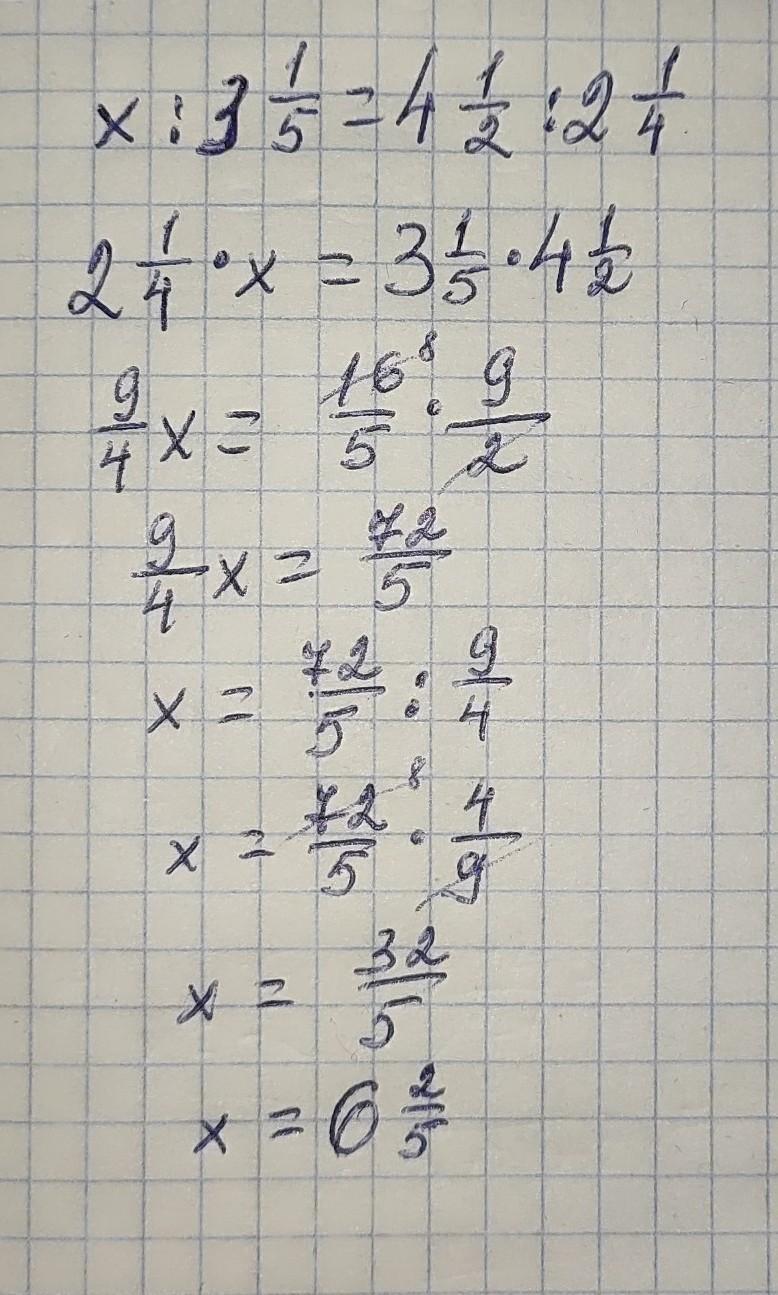 x : 3 1/5 = 4 1/2 : 2 1/4
2 1/4 · x = 3 1/5 · 4 1/2
9/4 x = 16/5 ⁸ · 9/2
9/4 x = 72/5
x = 72/5 : 9/4
x = 72/5 ⁸ · 4/9
x = 32/5
x = 6 2/5